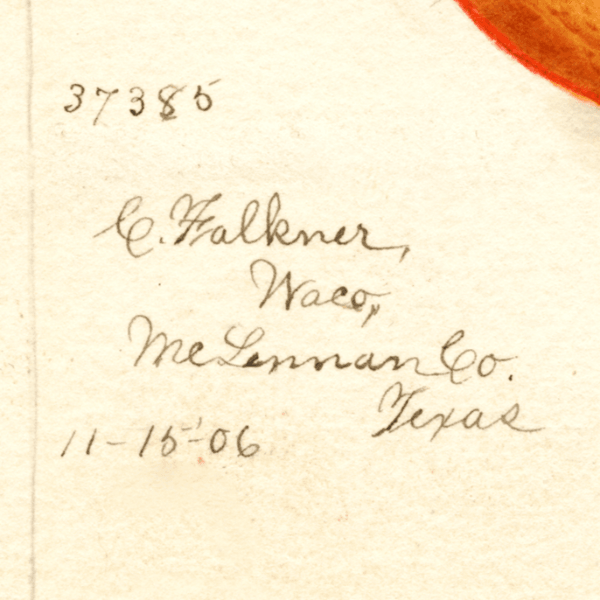 37385
C. Falkner,
Waco,
McLennan Co.
Texas
11-15-06